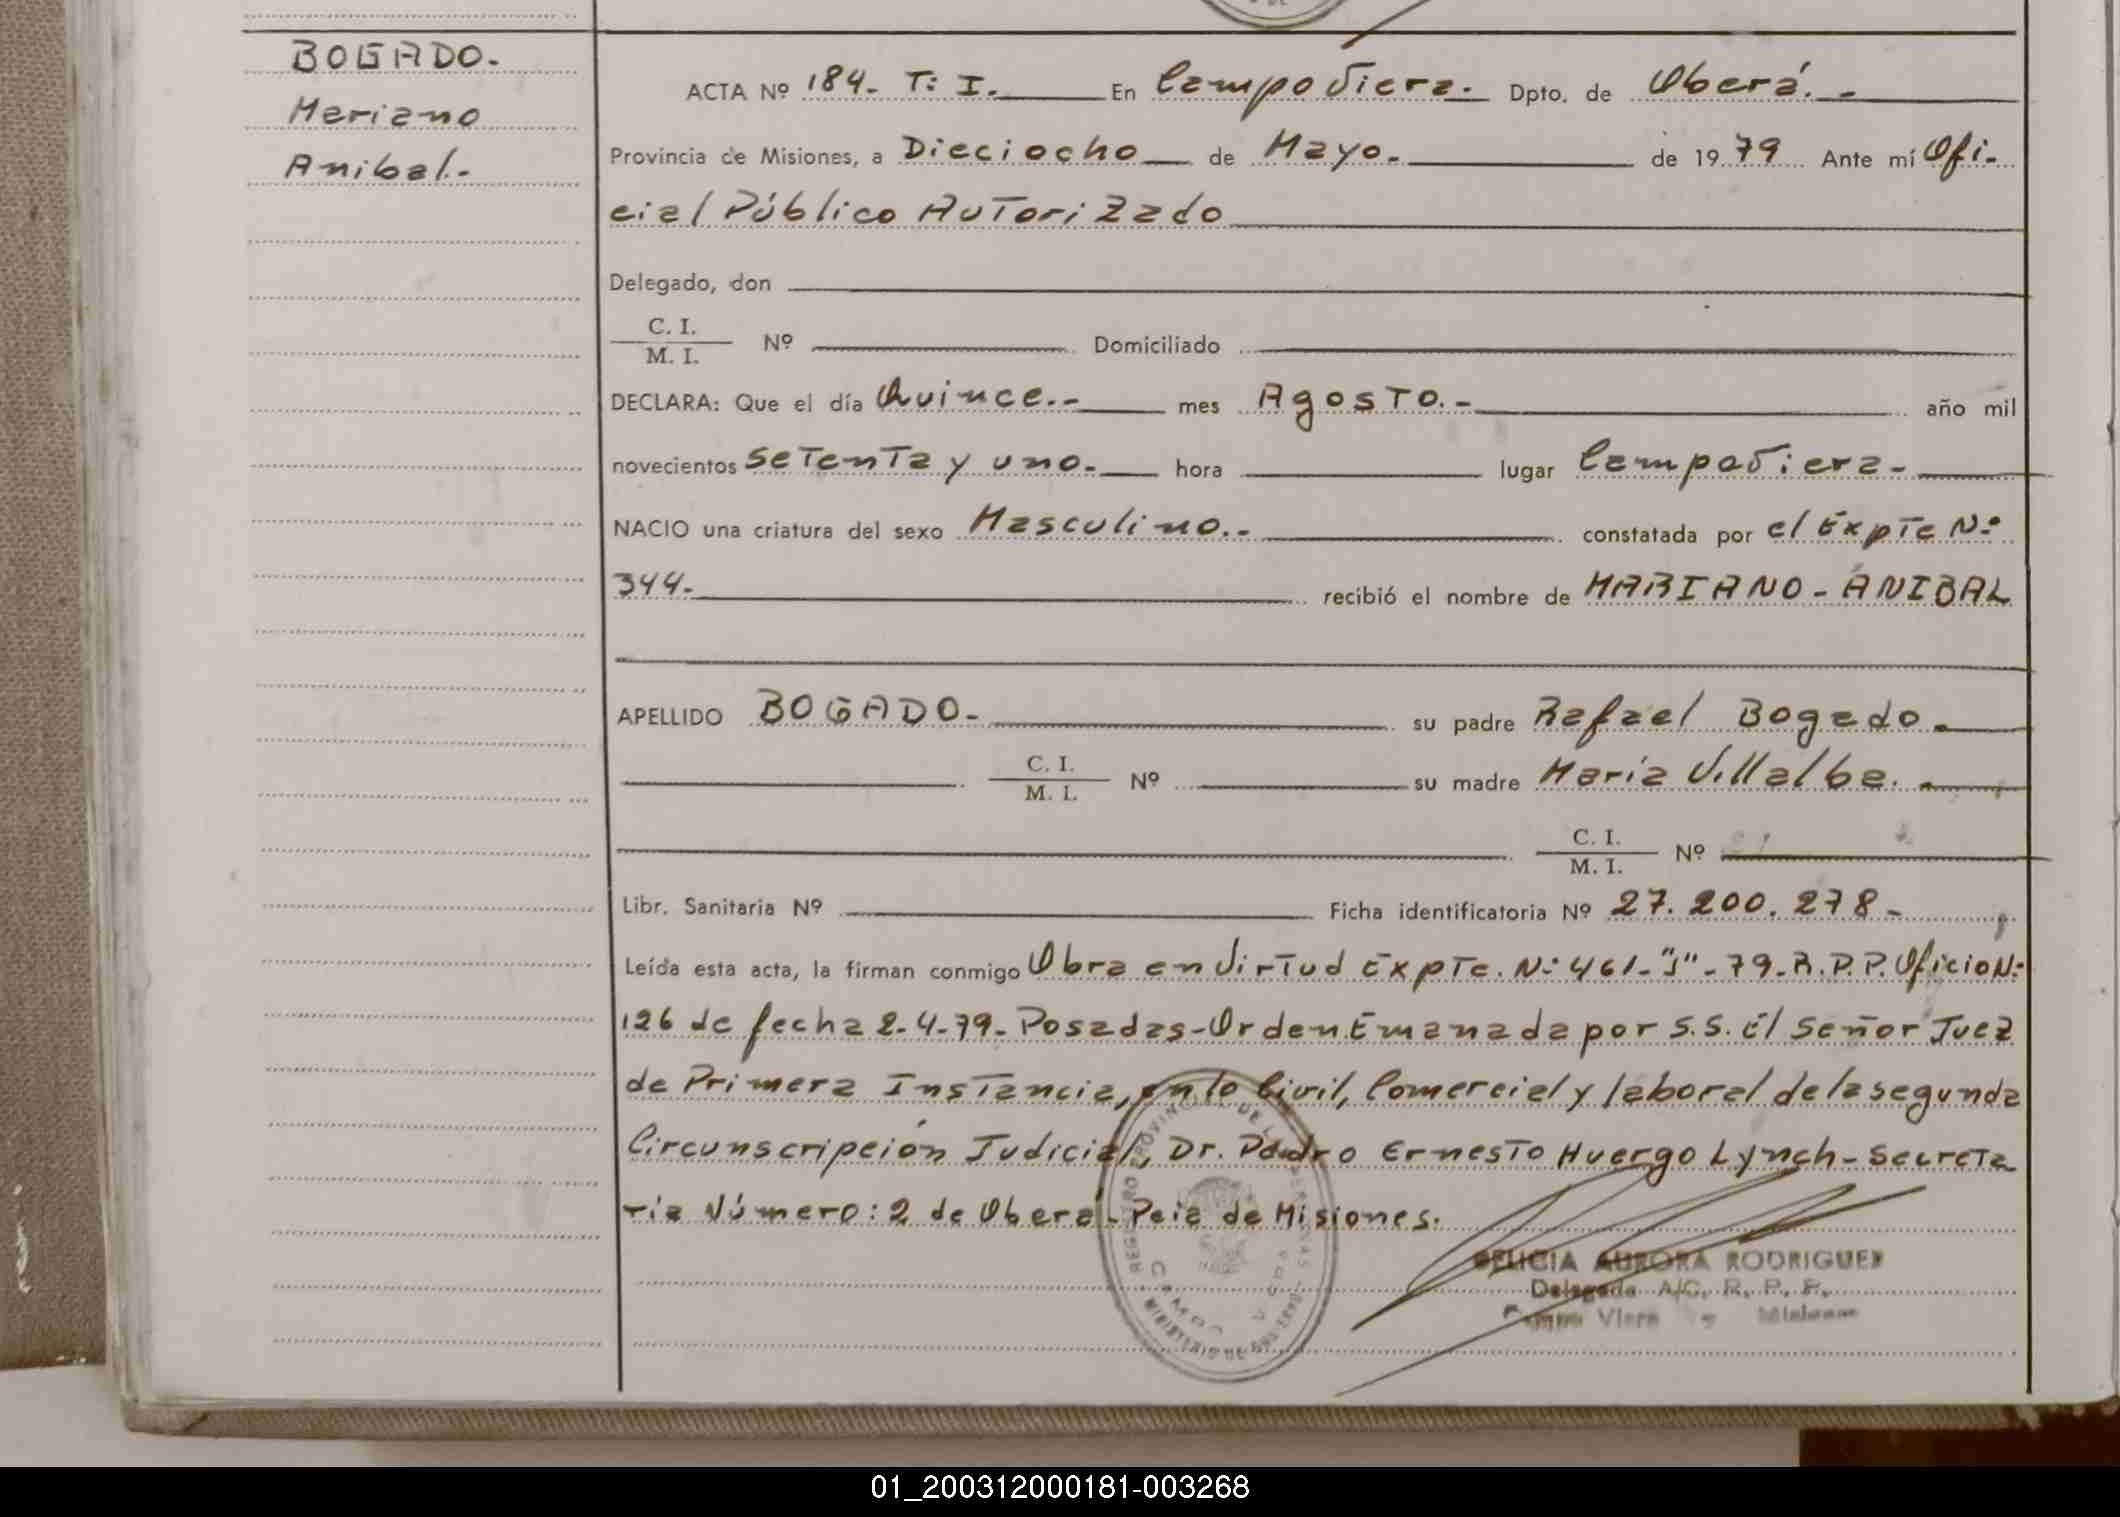 BOGADO.-
Mariano
Anibal.-
ACTA Nº 184.- T: I. En Campo Viera.- Dpto. de Oberá.-
Provincia de Misiones, a Dieciocho de Mayo.- de 1979 Ante mí Ofi-
cial Público Autorizado
Delegado, don
C. I.
M. I. Nº Domiciliado
DECLARA: Que el día Quince.- mes Agosto.- año mil
novecientos setenta y uno.- hora lugar Campo Viera.-
NACIO una criatura del sexo Masculino.- constatada por el Expte Nº
344.- recibió el nombre de MARIANO - ANIBAL
APELLIDO BOGADO.- su padre Rafael Bogado.-
C. I.
M. I. Nº su madre María Villalba.-
C. I.
M. I. Nº
Libr. Sanitaria Nº Ficha identificatoria Nº 27.200.278-
Leída esta acta, la firman conmigo Obra en Virtud Expte. Nº 461-"J"-79-R.P.P. Oficio Nº
126 de fecha 2-4-79- Posadas-Orden Emanada por S.S. El Señor Juez
de Primera Instancia, en lo Civil, Comercial y laboral de la segunda
Circunscripción Judicial, Dr. Pedro Ernesto Huergo Lynch-Secreta
ria Número: 2 de Oberá - Pcia de Misiones.
REGISTRO PROVINCIAL DE LAS PERSONAS
MINISTERIO DE
FELICIA AURORA RODRIGUEZ
Delegada A/C. R. P. P.
Campo Viera - Misiones
01_200312000181-003268